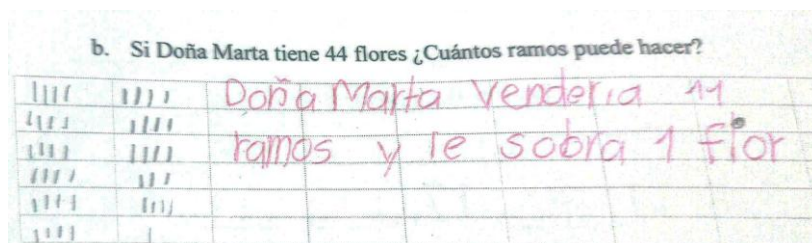 b. Si Doña Marta tiene 44 flores ¿Cuántos ramos puede hacer?
Doña Marta Venderia 11
ramos y le sobra 1 flor